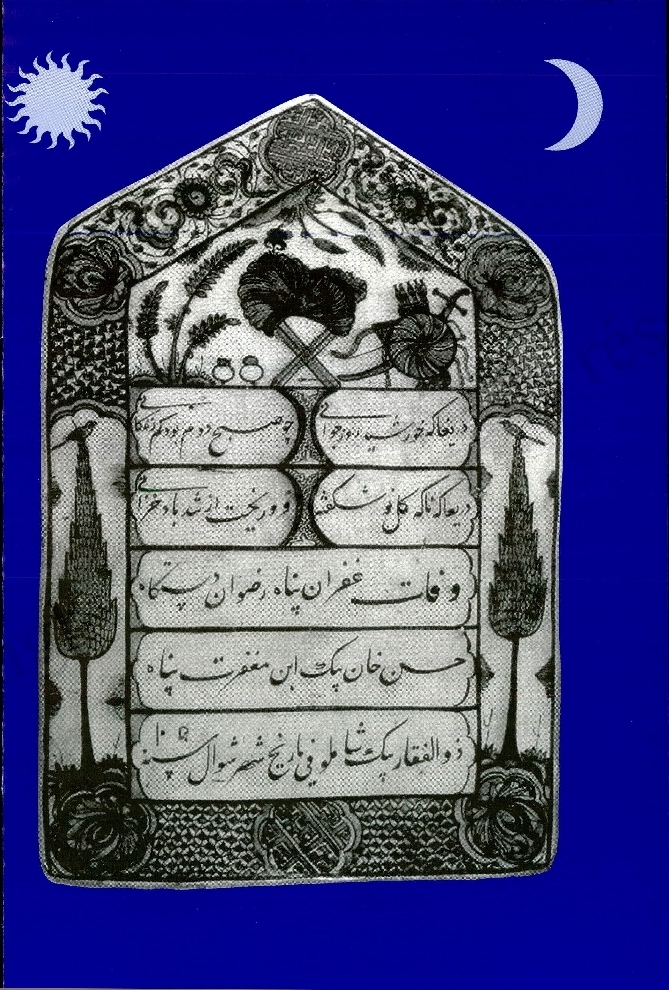 دریغا که خورشید روز جوانی چو صبح دوم بود کم زندگانی
دریغا که ناگه گل نو شکفته فرو ریخت از تند باد خزانی
وفات غفران پناه رضوان دستگاه
حسن خان بیک ابن مغفرت پناه
ذوالفقار بیک شاملو فی تاریخ شهر شوال سنه